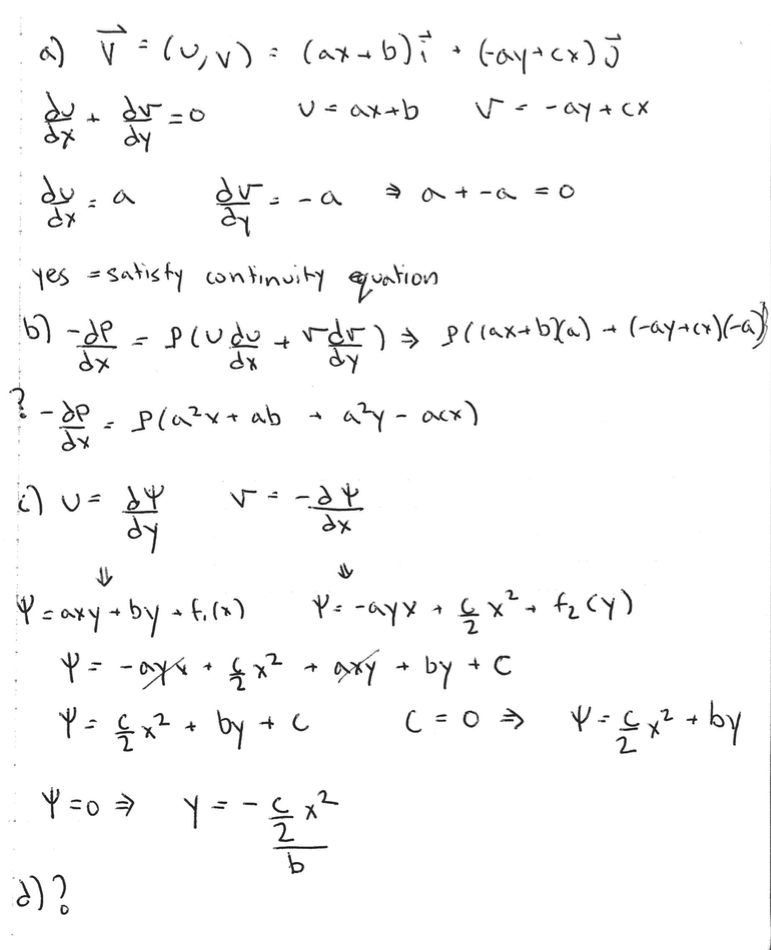 a) V⃗ = (u, v) = (ax + b) i⃗ + (-ay + cx) j⃗
du/dx + dv/dy = 0   u = ax+b   v = -ay + cx
du/dx = a   dv/dy = -a ⇒ a + -a = 0
yes = satisfy continuity equation
b) -∂P/∂x = ρ(u du/dx + v dv/dy) ⇒ ρ((ax+b)(a) + (-ay+cx)(-a))
? -∂P/∂x = ρ(a²x + ab + a²y - acx)
c) u = ∂Ψ/∂y   v = -∂Ψ/∂x
⇓   ⇓
Ψ = axy + by + f₁(x)   Ψ = -ayx + c/2 x² + f₂(y)
Ψ = -ayx + c/2 x² + axy + by + C
Ψ = c/2 x² + by + C   C = 0 ⇒ Ψ = c/2 x² + by
Ψ = 0 ⇒ y = -(c/2 x²)/b
d) ?